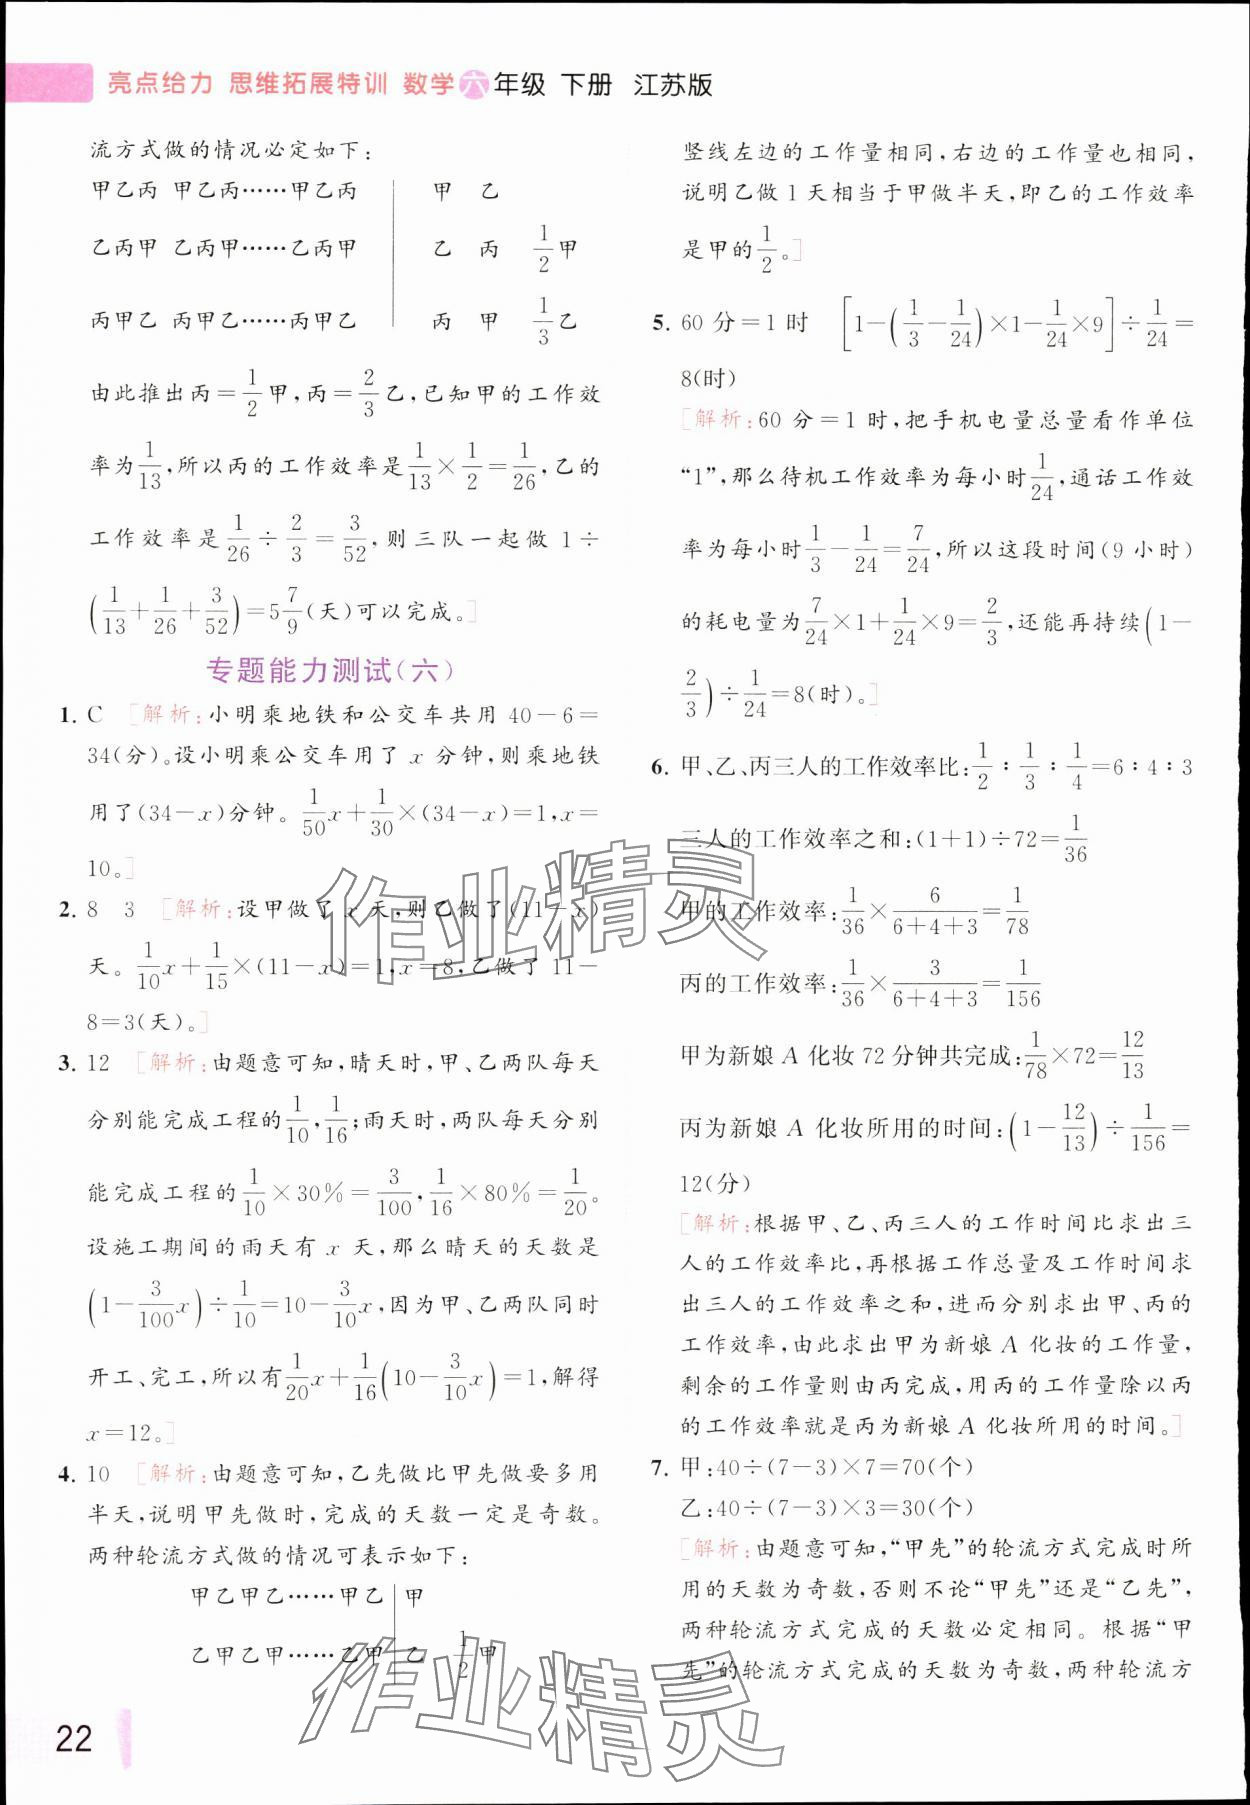 亮点给力 思维拓展特训 数学六年级 下册 江苏版
流方式做的情况必定如下：
甲乙丙 甲乙丙……甲乙丙 | 甲 乙
乙丙甲 乙丙甲……乙丙甲 | 乙 丙 1/2甲
丙甲乙 丙甲乙……丙甲乙 | 丙 甲 1/3乙
由此推出丙=1/2甲，丙=2/3乙，已知甲的工作效
率为1/13，所以丙的工作效率是1/13×1/2=1/26，乙的
工作效率是1/26÷2/3=3/52，则三队一起做1÷
(1/13+1/26+3/52)=5 7/9(天)可以完成。]
专题能力测试(六)
1. C [解析：小明乘地铁和公交车共用40-6=
34(分)。设小明乘公交车用了x分钟，则乘地铁
用了(34-x)分钟。1/50x+1/30×(34-x)=1，x=
10。]
2. 8 3 [解析：设甲做了x天，则乙做了(11-x)
天。1/10x+1/15×(11-x)=1，x=8，乙做了11-
8=3(天)。]
3. 12 [解析：由题意可知，晴天时，甲、乙两队每天
分别能完成工程的1/10，1/16；雨天时，两队每天分别
能完成工程的1/10×30%=3/100，1/16×80%=1/20。
设施工期间的雨天有x天，那么晴天的天数是
(1-3/100x)÷1/10=10-3/10x，因为甲、乙两队同时
开工、完工，所以有1/20x+1/16(10-3/10x)=1，解得
x=12。]
4. 10 [解析：由题意可知，乙先做比甲先做要多用
半天，说明甲先做时，完成的天数一定是奇数。
两种轮流方式做的情况可表示如下：
甲乙甲乙……甲乙 | 甲
乙甲乙甲……乙甲 | 乙 1/2甲
22
竖线左边的工作量相同，右边的工作量也相同，
说明乙做1天相当于甲做半天，即乙的工作效率
是甲的1/2。]
5. 60分=1时 [1-(1/3-1/24)×1-1/24×9]÷1/24=
8(时)
[解析：60分=1时，把手机电量总量看作单位
“1”，那么待机工作效率为每小时1/24，通话工作效
率为每小时1/3-1/24=7/24，所以这段时间(9小时)
的耗电量为7/24×1+1/24×9=2/3，还能再持续(1-
2/3)÷1/24=8(时)。]
6. 甲、乙、丙三人的工作效率比：1/2：1/3：1/4=6：4：3
三人的工作效率之和：(1+1)÷72=1/36
甲的工作效率：1/36×6/(6+4+3)=1/78
丙的工作效率：1/36×3/(6+4+3)=1/156
甲为新娘A化妆72分钟共完成：1/78×72=12/13
丙为新娘A化妆所用的时间：(1-12/13)÷1/156=
12(分)
[解析：根据甲、乙、丙三人的工作时间比求出三
人的工作效率比，再根据工作总量及工作时间求
出三人的工作效率之和，进而分别求出甲、丙的
工作效率，由此求出甲为新娘A化妆的工作量，
剩余的工作量则由丙完成，用丙的工作量除以丙
的工作效率就是丙为新娘A化妆所用的时间。]
7. 甲：40÷(7-3)×7=70(个)
乙：40÷(7-3)×3=30(个)
[解析：由题意可知，“甲先”的轮流方式完成时所
用的天数为奇数，否则不论“甲先”还是“乙先”，
两种轮流方式完成的天数必定相同。根据“甲
先”的轮流方式完成的天数为奇数，两种轮流方
作业精灵
作业精灵